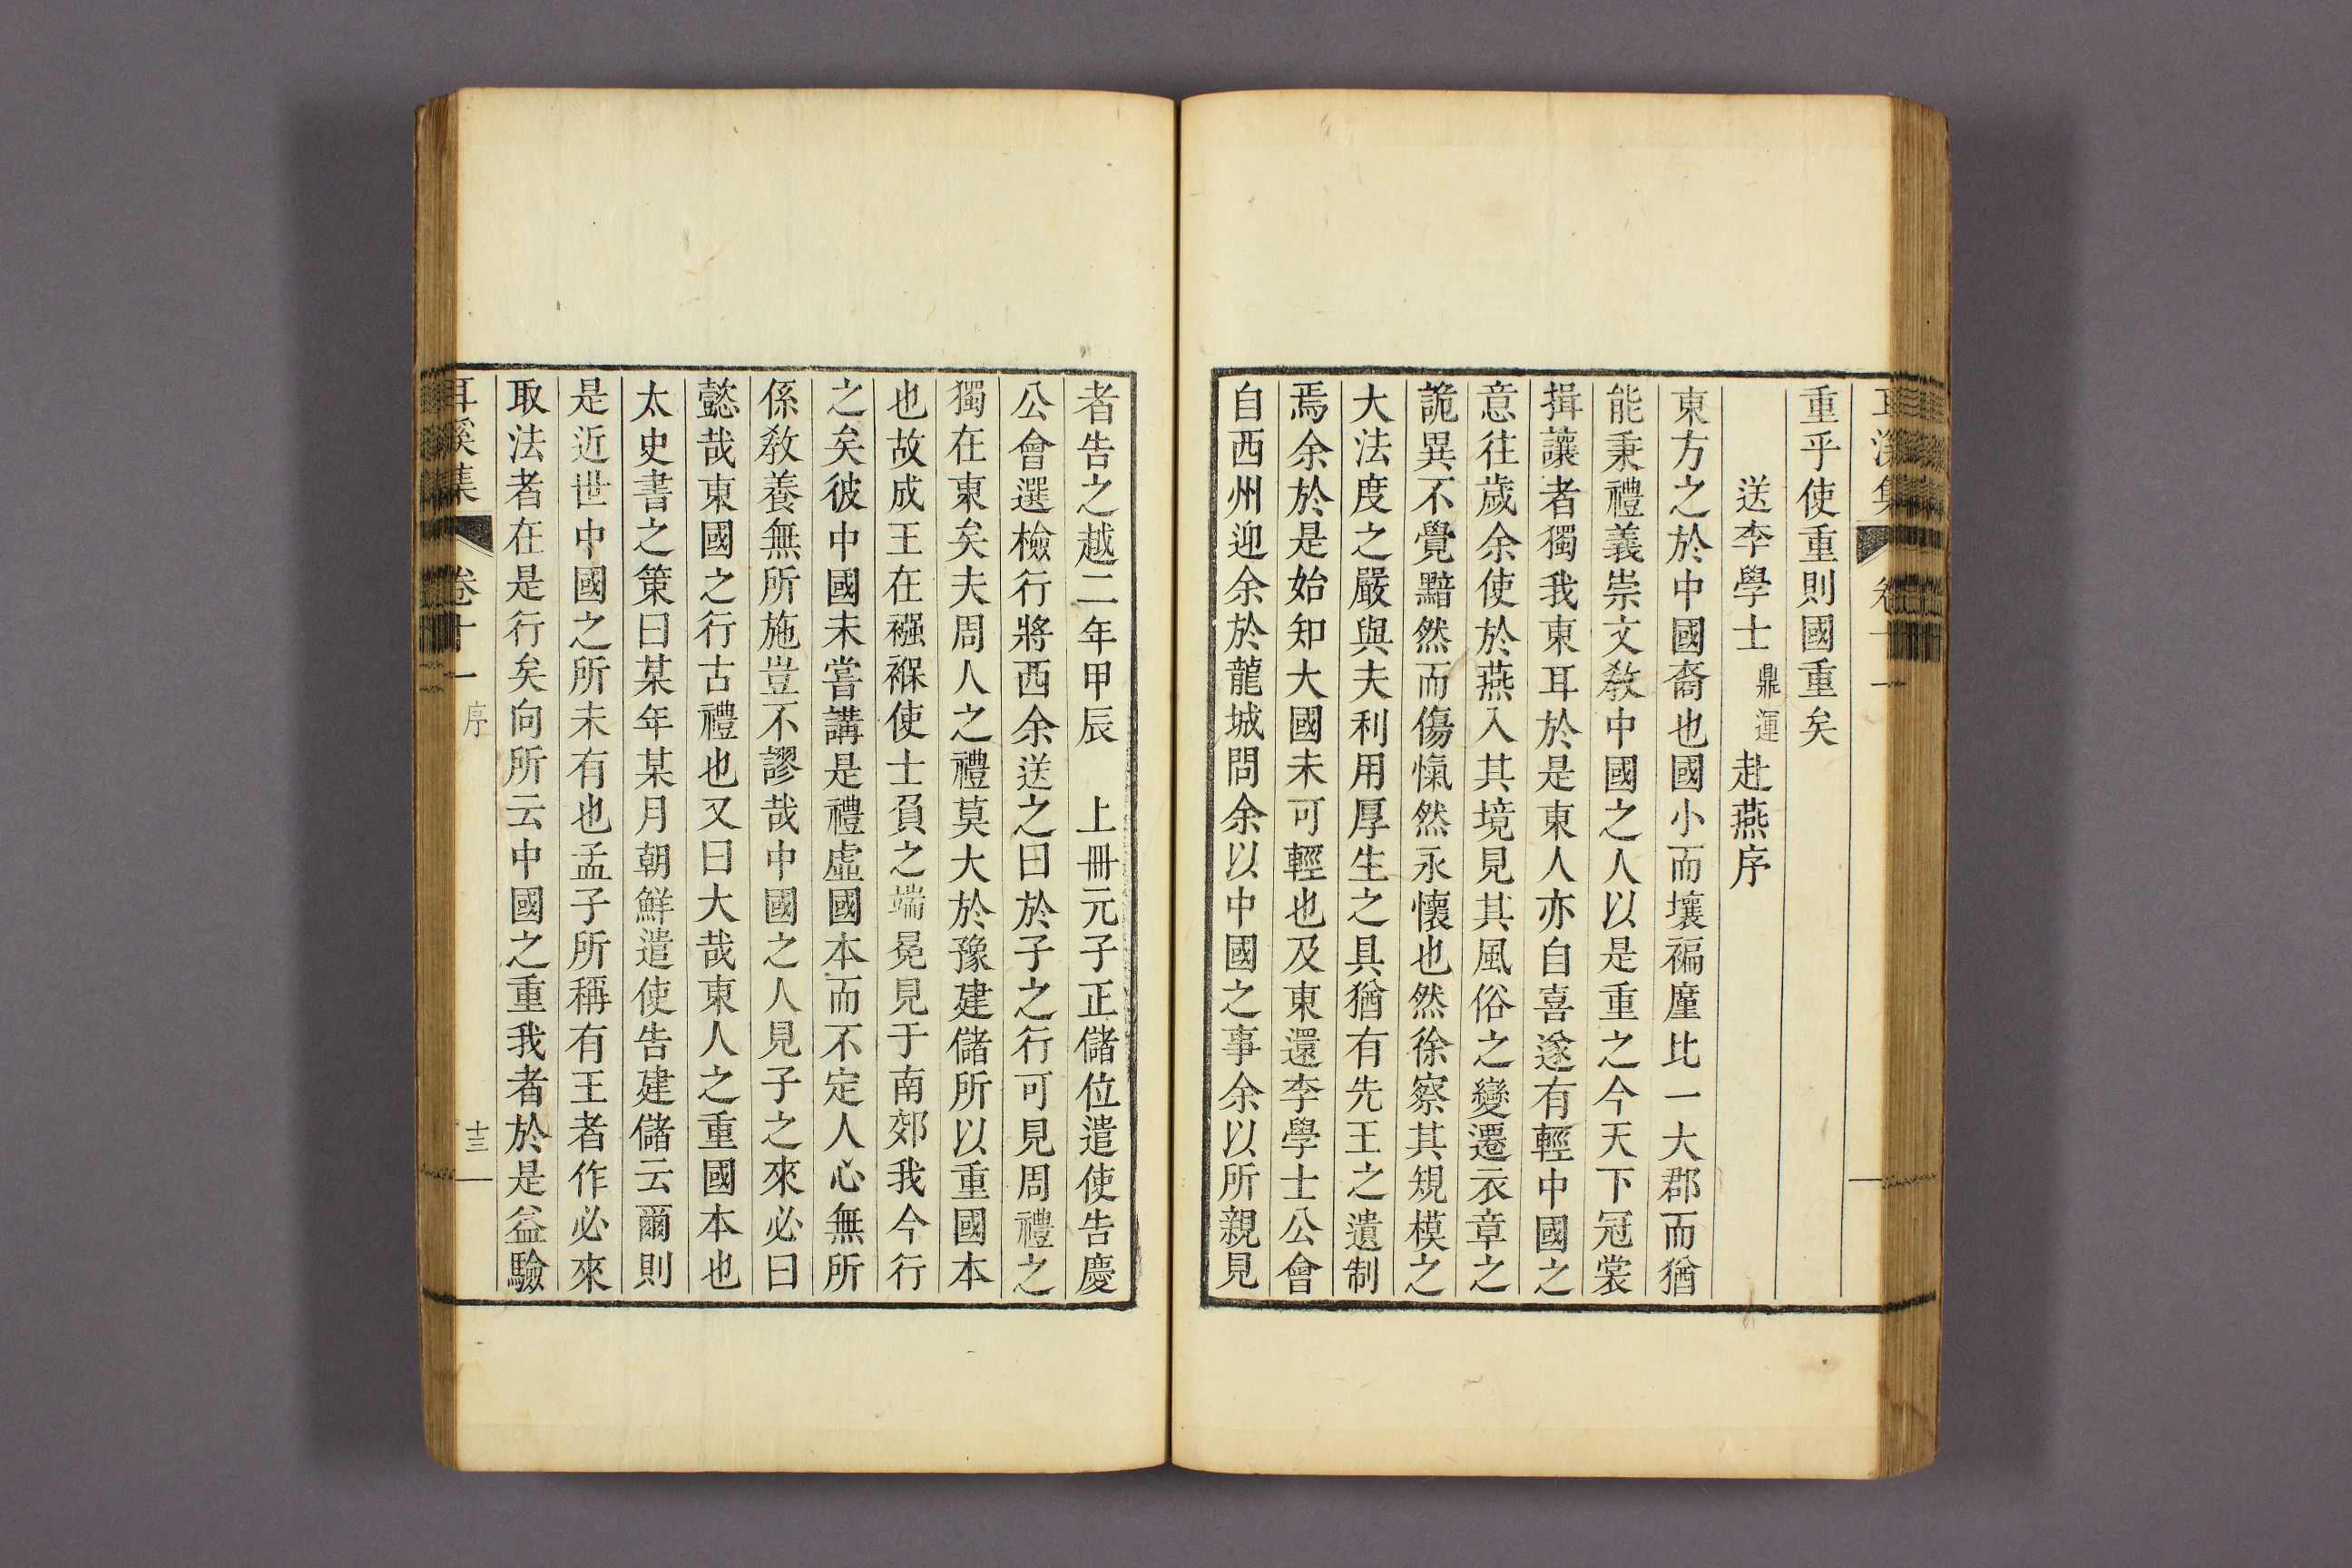 重乎使重則國重矣
送李學士鼎運赴燕序
東方之於中國裔也國小而壤褊廑比一大郡而猶
能秉禮義崇文敎中國之人以是重之今天下冠裳
揖讓者獨我東耳於是東人亦自喜遂有輕中國之
意往歲余使於燕入其境見其風俗之變遷衣章之
詭異不覺黯然而傷愾然永懷也然徐察其規模之
大法度之嚴與夫利用厚生之具猶有先王之遺制
焉余於是始知大國未可輕也及東還李學士公會
自西州迎余於龍城問余以中國之事余以所親見
者告之越二年甲辰　上冊元子正儲位遣使告慶
公會選檢行將西余送之曰於子之行可見周禮之
獨在東矣夫周人之禮莫大於豫建儲所以重國本
也故成王在襁褓使士負之端冕見于南郊我今行
之矣彼中國未嘗講是禮虛國本而不定人心無所
係敎養無所施豈不謬哉中國之人見子之來必曰
懿哉東國之行古禮也又曰大哉東人之重國本也
太史書之策曰某年某月朝鮮遣使告建儲云爾則
是近世中國之所未有也孟子所稱有王者作必來
取法者在是行矣向所云中國之重我者於是益驗
耳溪集　卷十一　序　十三